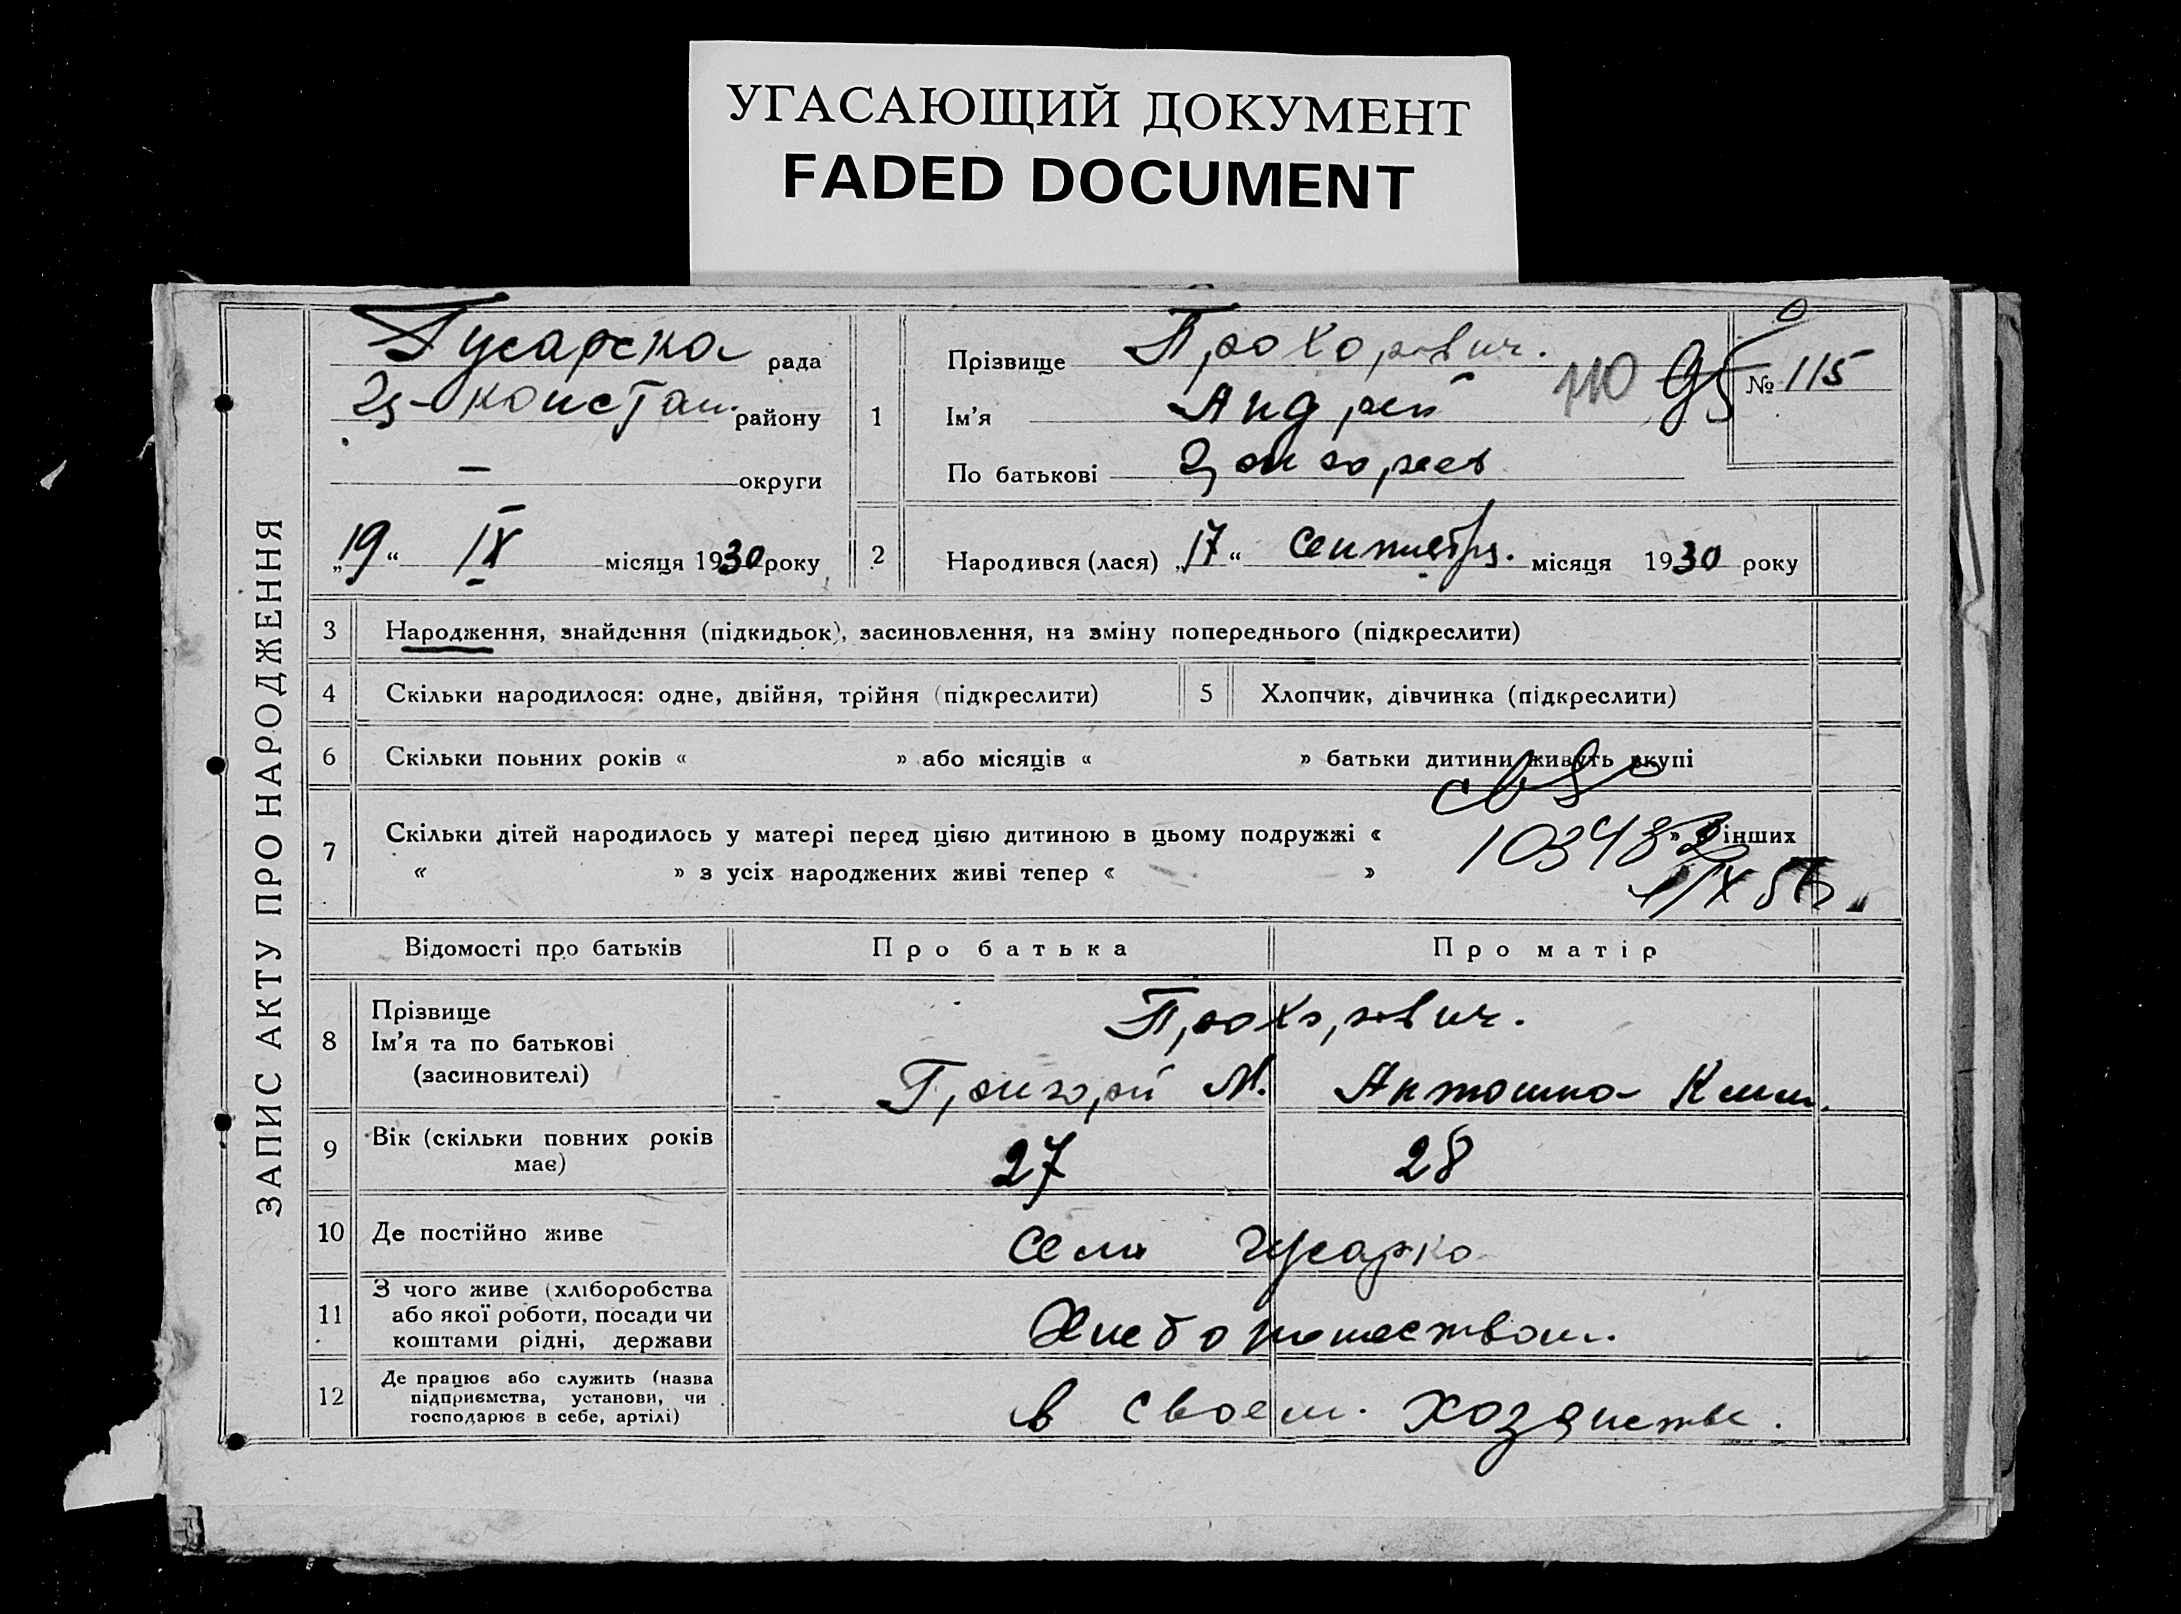 УГАСАЮЩИЙ ДОКУМЕНТ
FADED DOCUMENT
ЗАПИС АКТУ ПРО НАРОДЖЕННЯ
Гусарска рада
району
— округи
„19“ IX місяця 1930 року
1
Прізвище Прохорович.
Ім’я Андрей
По батькові
110 95
№ 115
2 Народився (лася) „17“ Сентября. місяця 1930 року
3 Народження, знайдення (підкидьок), засиновлення, на зміну попереднього (підкреслити)
4 Скільки народилося: одне, двійня, трійня (підкреслити)
5 Хлопчик, дівчинка (підкреслити)
6 Скільки повних років « » або місяців « » батьки дитини живуть вкупі
7 Скільки дітей народилось у матері перед цією дитиною в цьому подружжі « » інших
« » з усіх народжених живі тепер « »
Відомості про батьків
Про батька
Про матір
8 Прізвище
Ім’я та по батькові
(засиновителі)
Прохорович.
Григорий М.
9 Вік (скільки повних років
має)
27
28
10 Де постійно живе
Село Гусарка
11 З чого живе (хліборобства
або якої роботи, посади чи
коштами рідні, держави
12 Де працює або служить (назва
підприємства, установи, чи
господарює в себе, артілі)
в своем.